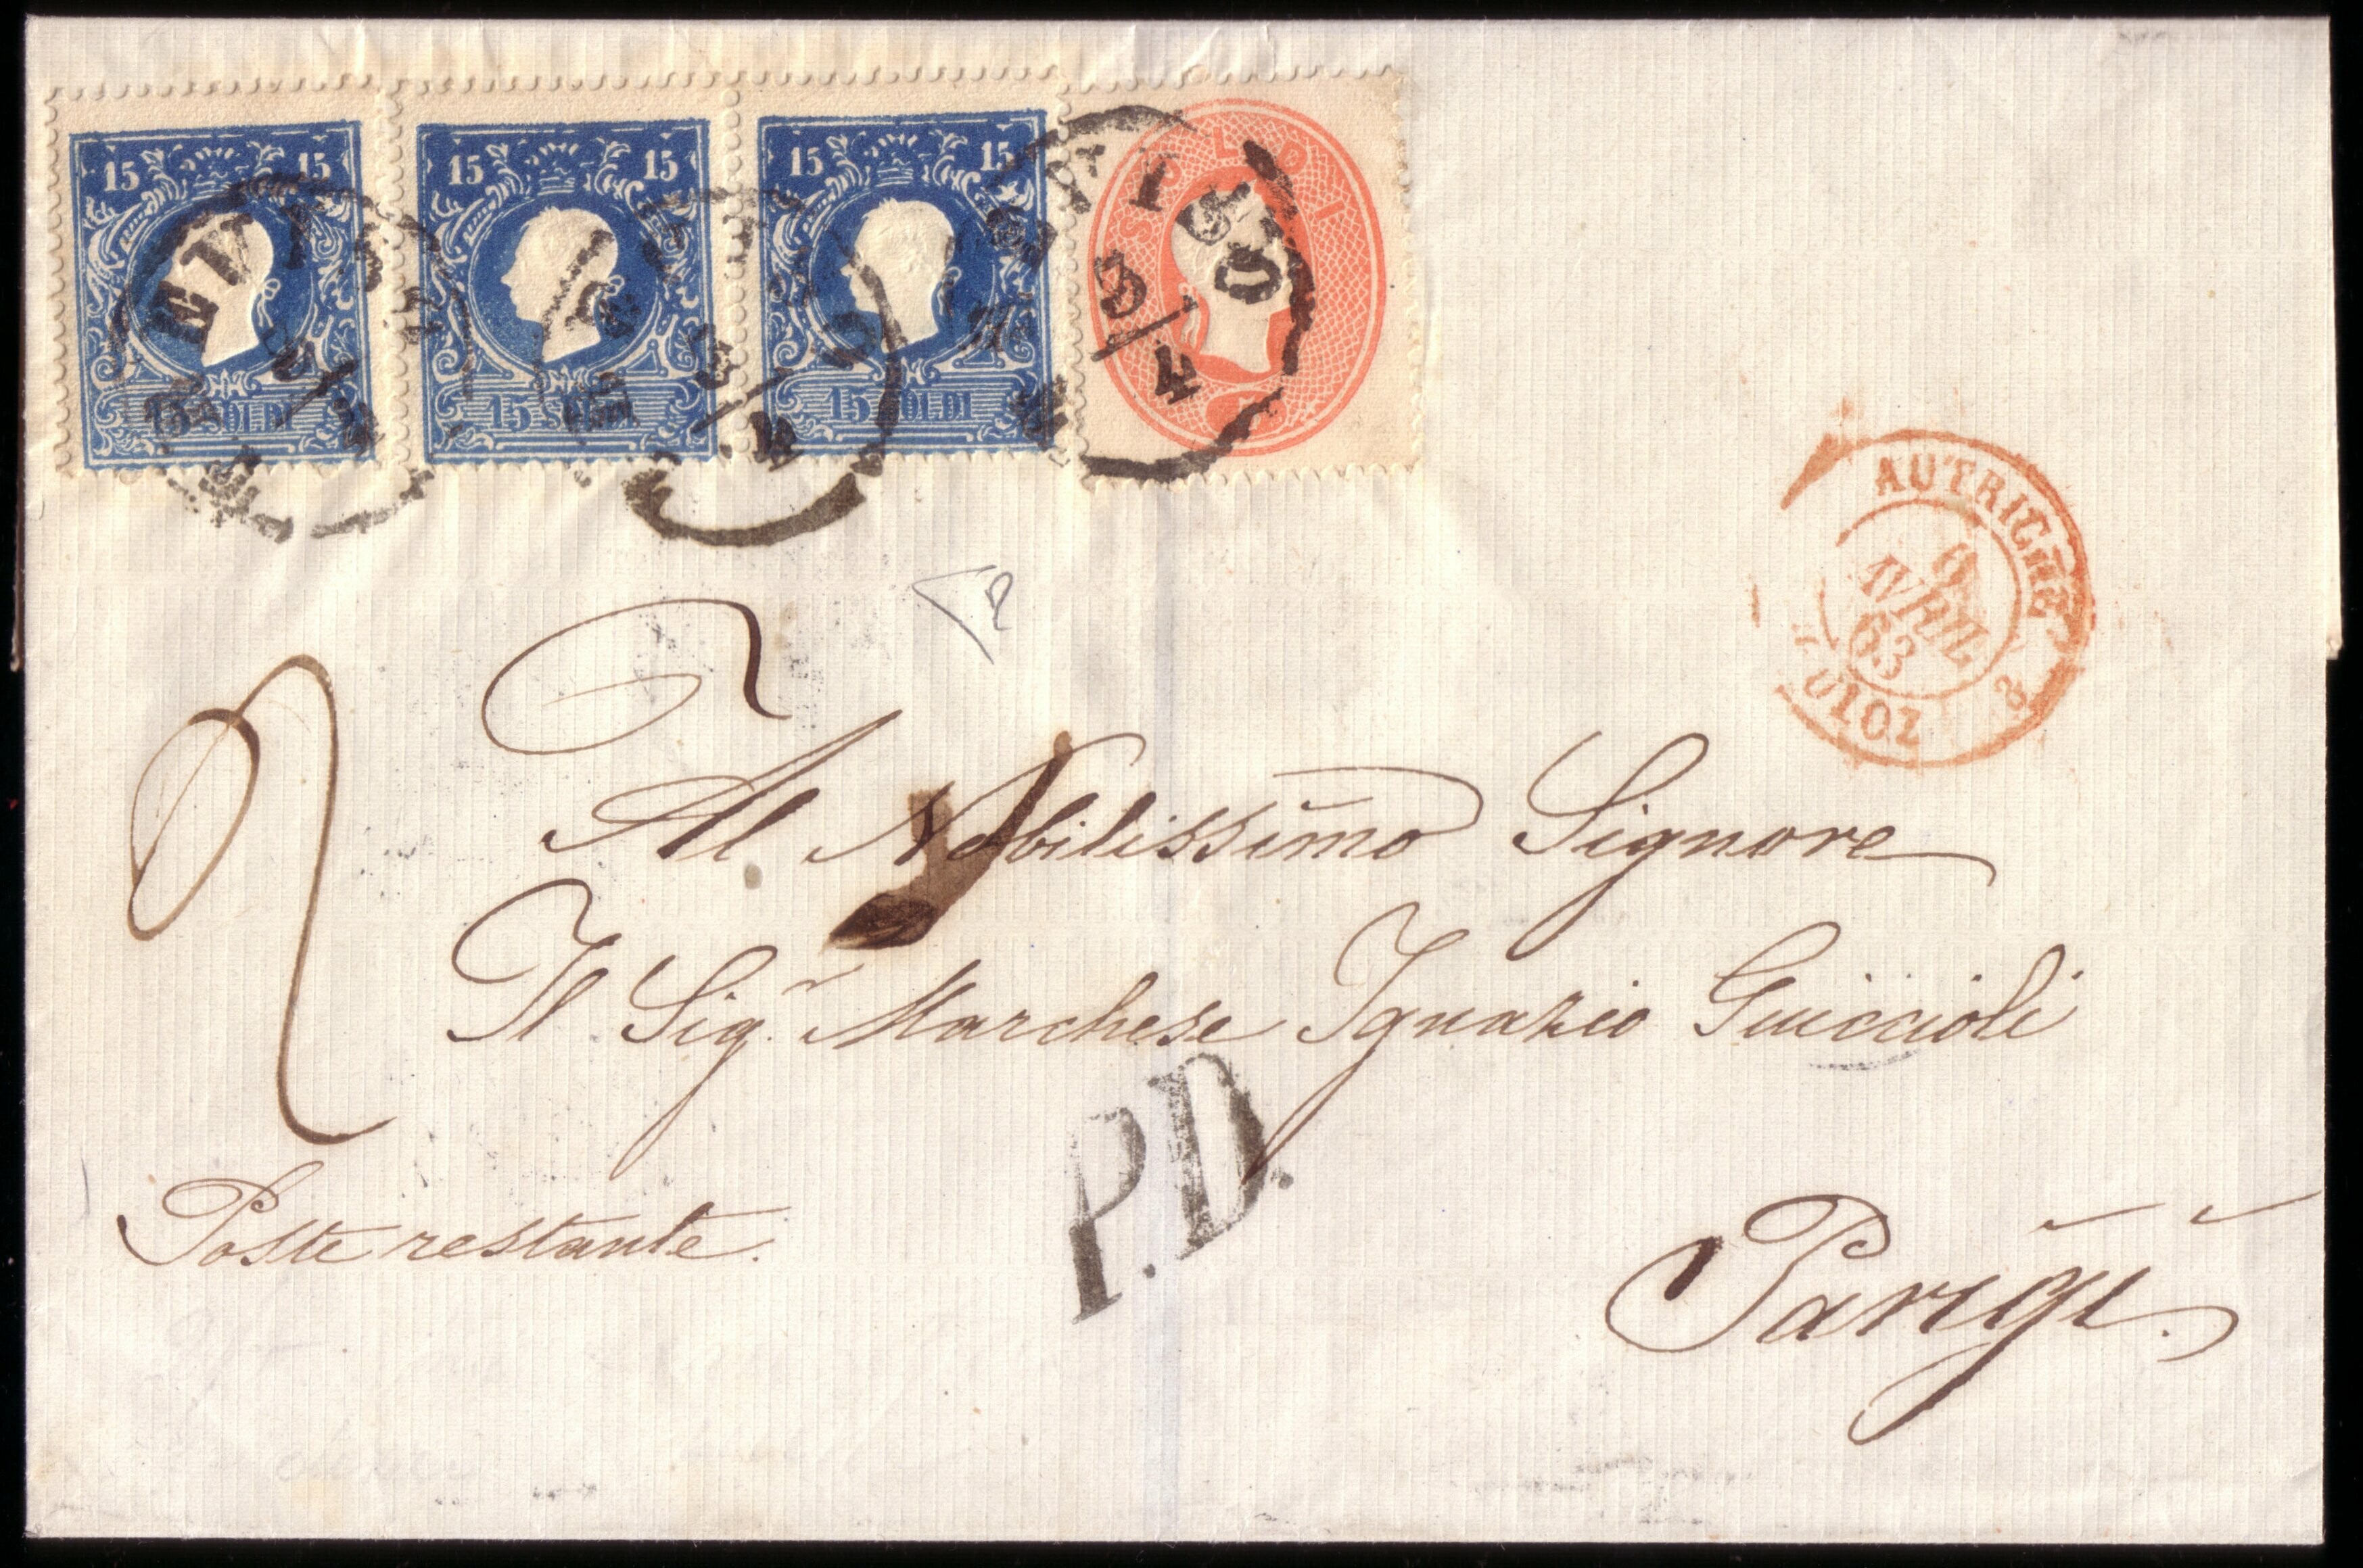 15 15
15 SOLDI
15 15
15 SOLDI
15 15
15 SOLDI
SOLDI
5
3/4
AUTRICHE
6
AVRIL
63
CULOZ
2
Al Nobilissimo Signore
Il Sig.r Marchese Ignazio Guiccioli
P.D.
Poste restante.
Parigi.